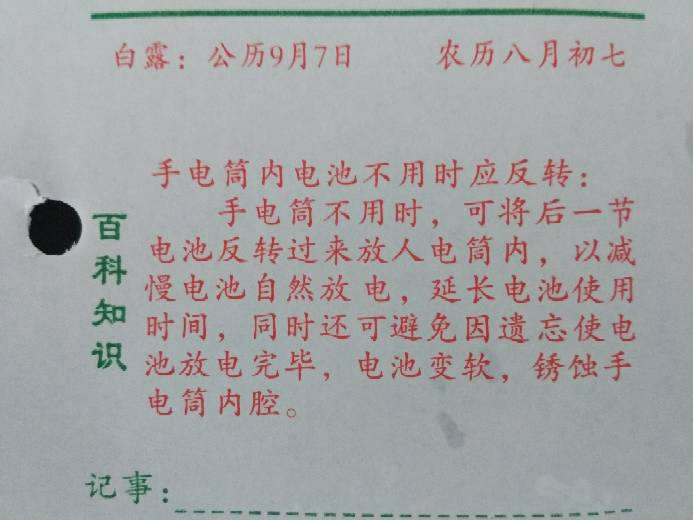 白露：公历9月7日 农历八月初七
手电筒内电池不用时应反转：
手电筒不用时，可将后一节
电池反转过来放人电筒内，以减
慢电池自然放电，延长电池使用
时间，同时还可避免因遗忘使电
池放电完毕，电池变软，锈蚀手
电筒内腔。
百科知识
记事：